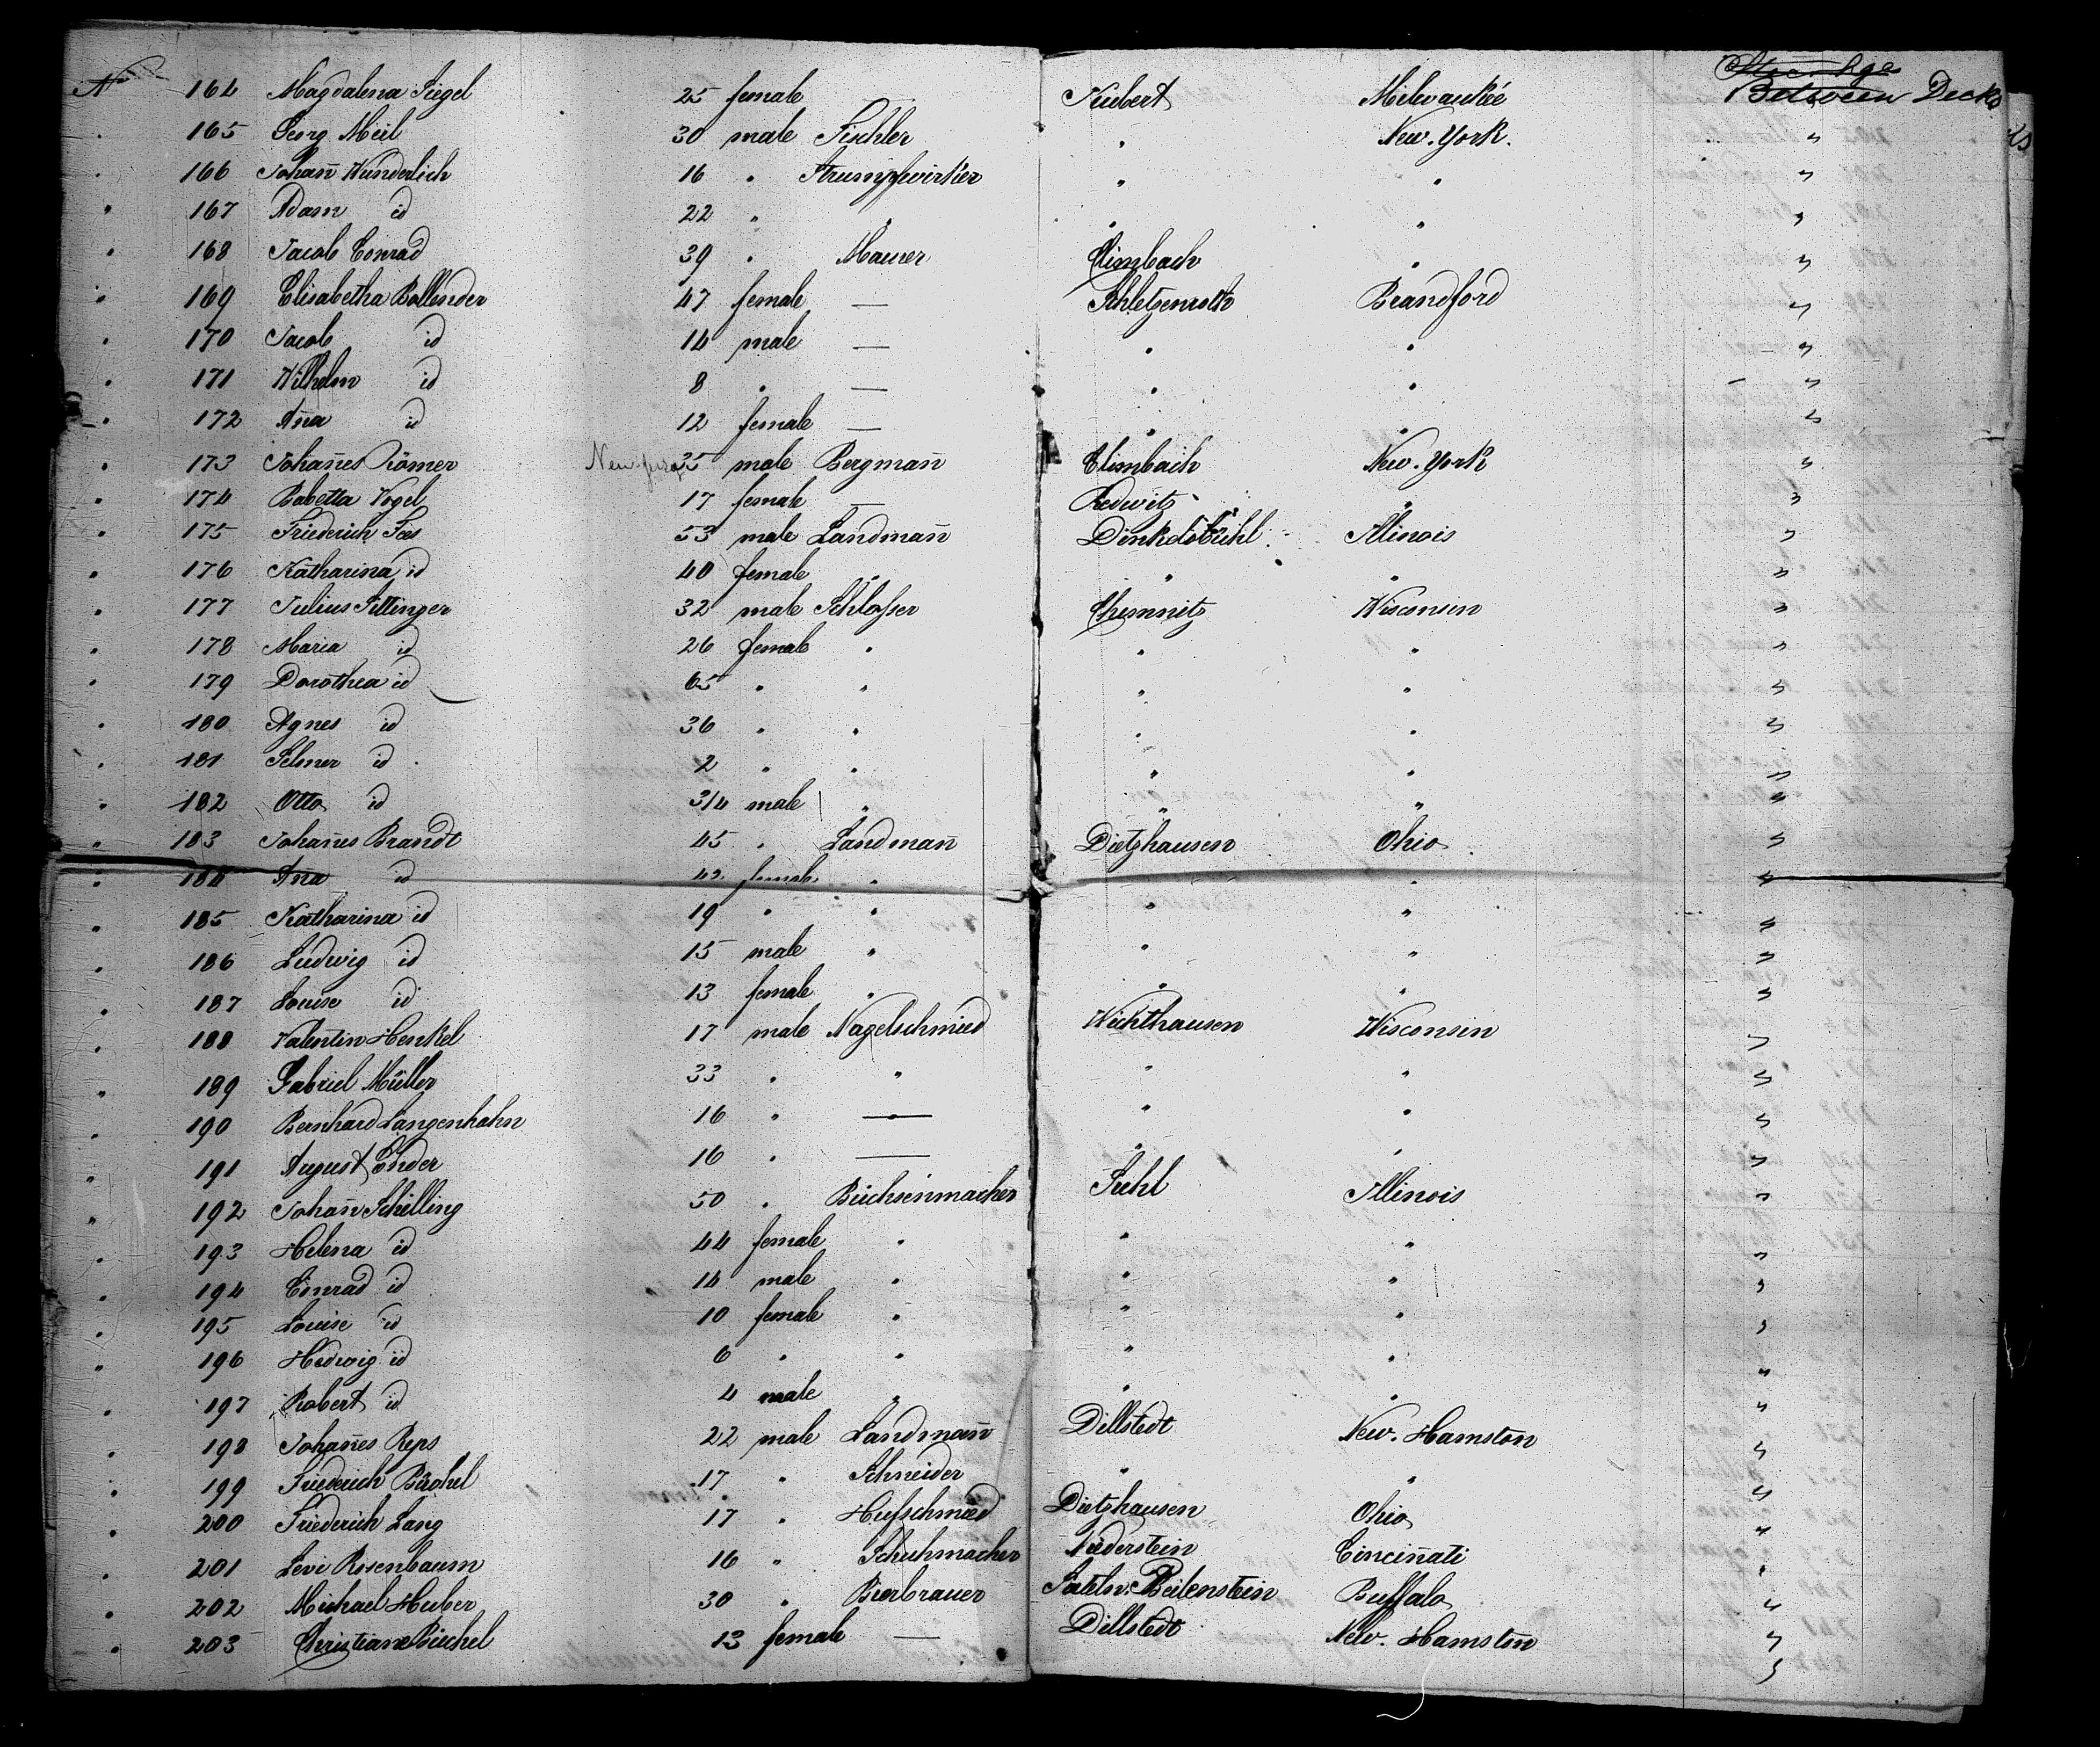 Steerage
No 164 Magdalena Siegel 25 female Neubert Milwaukée Between Decks
" 165 Georg Meil 30 male Tischler " New-York. "
" 166 Johañ Wunderlich 16 " Strumpfwirker " " "
" 167 Adam id 22 " " " " "
" 168 Jacob Conrad 39 " Mauer Climbach " "
" 169 Elisabetha Bollender 47 female — Schletzenroth Brandford "
" 170 Jacob id 14 male — " " "
" 171 Wilhelm id 8 " — " " "
" 172 Aña id 12 female — " " "
" 173 Johañes Römer 35 male Bergmañ Climbach New-York "
" 174 Babetta Vogel 17 female — Redwitz " "
" 175 Friederich Fees 53 male Landmañ Dinkelsbühl Illinois "
" 176 Katharina id 40 female " " " "
" 177 Julius Sittinger 32 male Schlosser Chemnitz Wisconsin "
" 178 Maria id 26 female " " " "
" 179 Dorothea id 65 " " " " "
" 180 Agnes id 36 " " " " "
" 181 Selmer id 2 " " " " "
" 182 Otto id 3/4 male " " " "
" 183 Johañes Brandt 45 " Landmañ Dietzhausen Ohio "
" 184 Aña id 42 female " " " "
" 185 Katharina id 19 " " " " "
" 186 Ludwig id 15 male " " " "
" 187 Louise id 13 female " " " "
" 188 Valentin Henkel 17 male Nagelschmied Wichthausen Wisconsin "
" 189 Gabriel Müller 33 " " " " "
" 190 Bernhard Langenhahn 16 " — " " "
" 191 August 16 " — " " "
" 192 Johañ Schilling 50 " Büchsenmacher Suhl Illinois "
" 193 Helena id 44 female " " " "
" 194 Conrad id 14 male " " " "
" 195 Louise id 10 female " " " "
" 196 Hedwig id 6 " " " " "
" 197 Robert id 4 male " " " "
" 198 Johañes Reps 22 male Landmañ Dillstedt New-Hamston "
" 199 Friederich Büchel 17 " Schneider " " "
" 200 Friederich Lang 17 " Hufschmied Dietzhausen Ohio "
" 201 Levi Rosenbaum 16 " Schuhmacher Niederstein Cinciñati "
" 202 Michael Huber 30 " Bierbrauer Beilenstein Buffalo "
" 203 Christiane Büchel 13 female — Dillstedt New-Hamston "